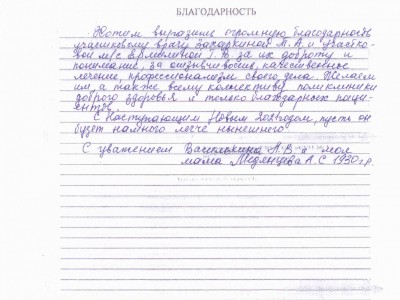 БЛАГОДАРНОСТЬ
Хотим выразить огромную благодарность
участковому врачу Захаркиной М. А. и участко-
вой м/с Т. В. за их доброту и
понимание, за отзывчивость, качественное
лечение, профессионализм своего дела. Желаем
им, а также, всему коллективу поликлиники
доброго здоровья и только благодарных паци-
ентов.
С Наступающим Новым годом, пусть он
будет намного легче нынешнего
С уважением А. В и моя
мама Медянцева А. С 1930 г. р.